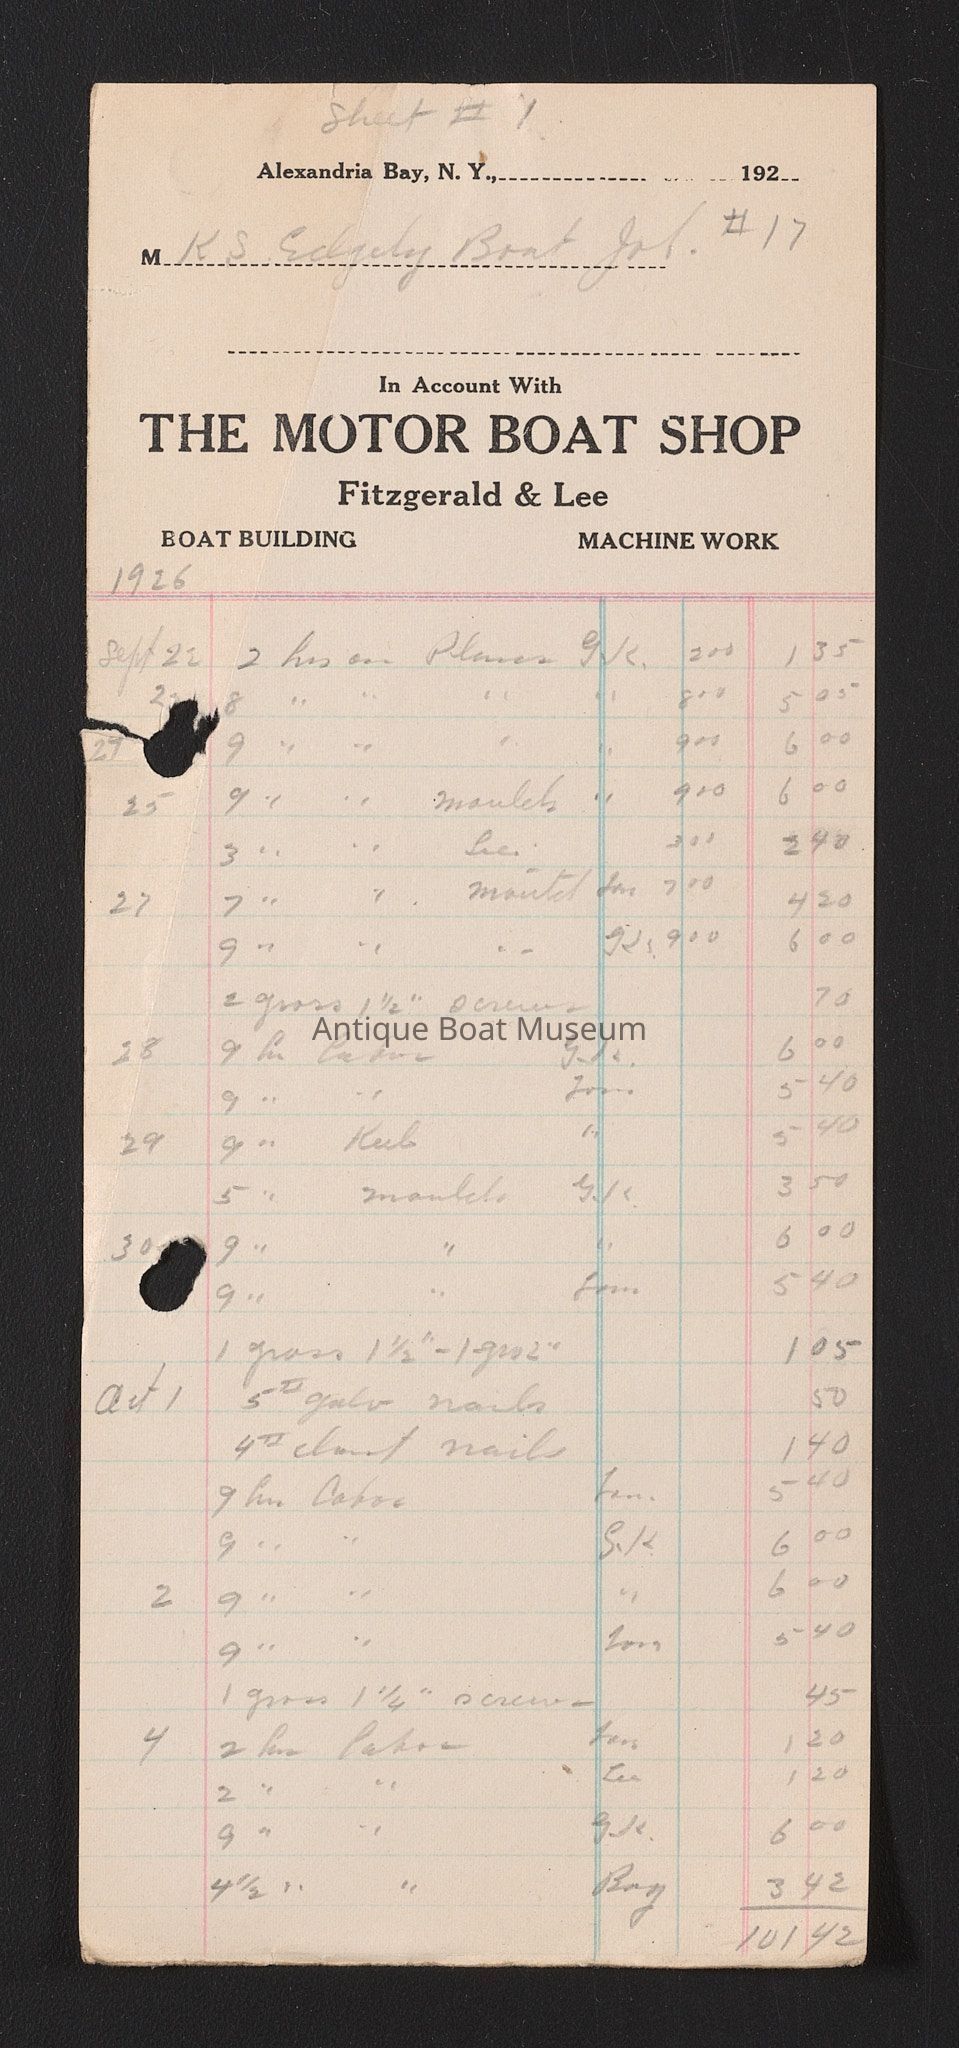 Sheet # 1
Alexandria Bay, N. Y., 192
M K S Edgely Boat Job. #17
In Account With
THE MOTOR BOAT SHOP
Fitzgerald & Lee
BOAT BUILDING MACHINE WORK
1926
Sept 22 2 hrs on Planes G.K. 200 1 35
8 " " " " 800 5 05
9 " " " " 900 6 00
25 9 " " moulds " 900 6 00
3 " " Lee. 300 2 40
27 7 " " mould Tom 700 4 20
9 " " " G.K. 900 6 00
2 gross 1 1/2" screws 70
Antique Boat Museum
28 9 hr labor G.K. 6 00
9 " " Tom 5 40
29 9 " Keel " 5 40
5 " moulds G.K 3 50
30 9 " " " 6 00
9 " " Tom 5 40
1 gross 1 1/2" - 1 gro 2" 1 05
Oct 1 5 # galv nails 50
4 # nails 1 40
9 hrs labor Tom. 5 40
9 " " G.K 6 00
2 9 " " " 6 00
9 " " Tom 5 40
1 gross 1 1/4" screws 45
4 2 hrs labor Tom 1 20
2 " " Lee 1 20
9 " " G.K. 6 00
4 1/2 " " Roy 3 42
101 42